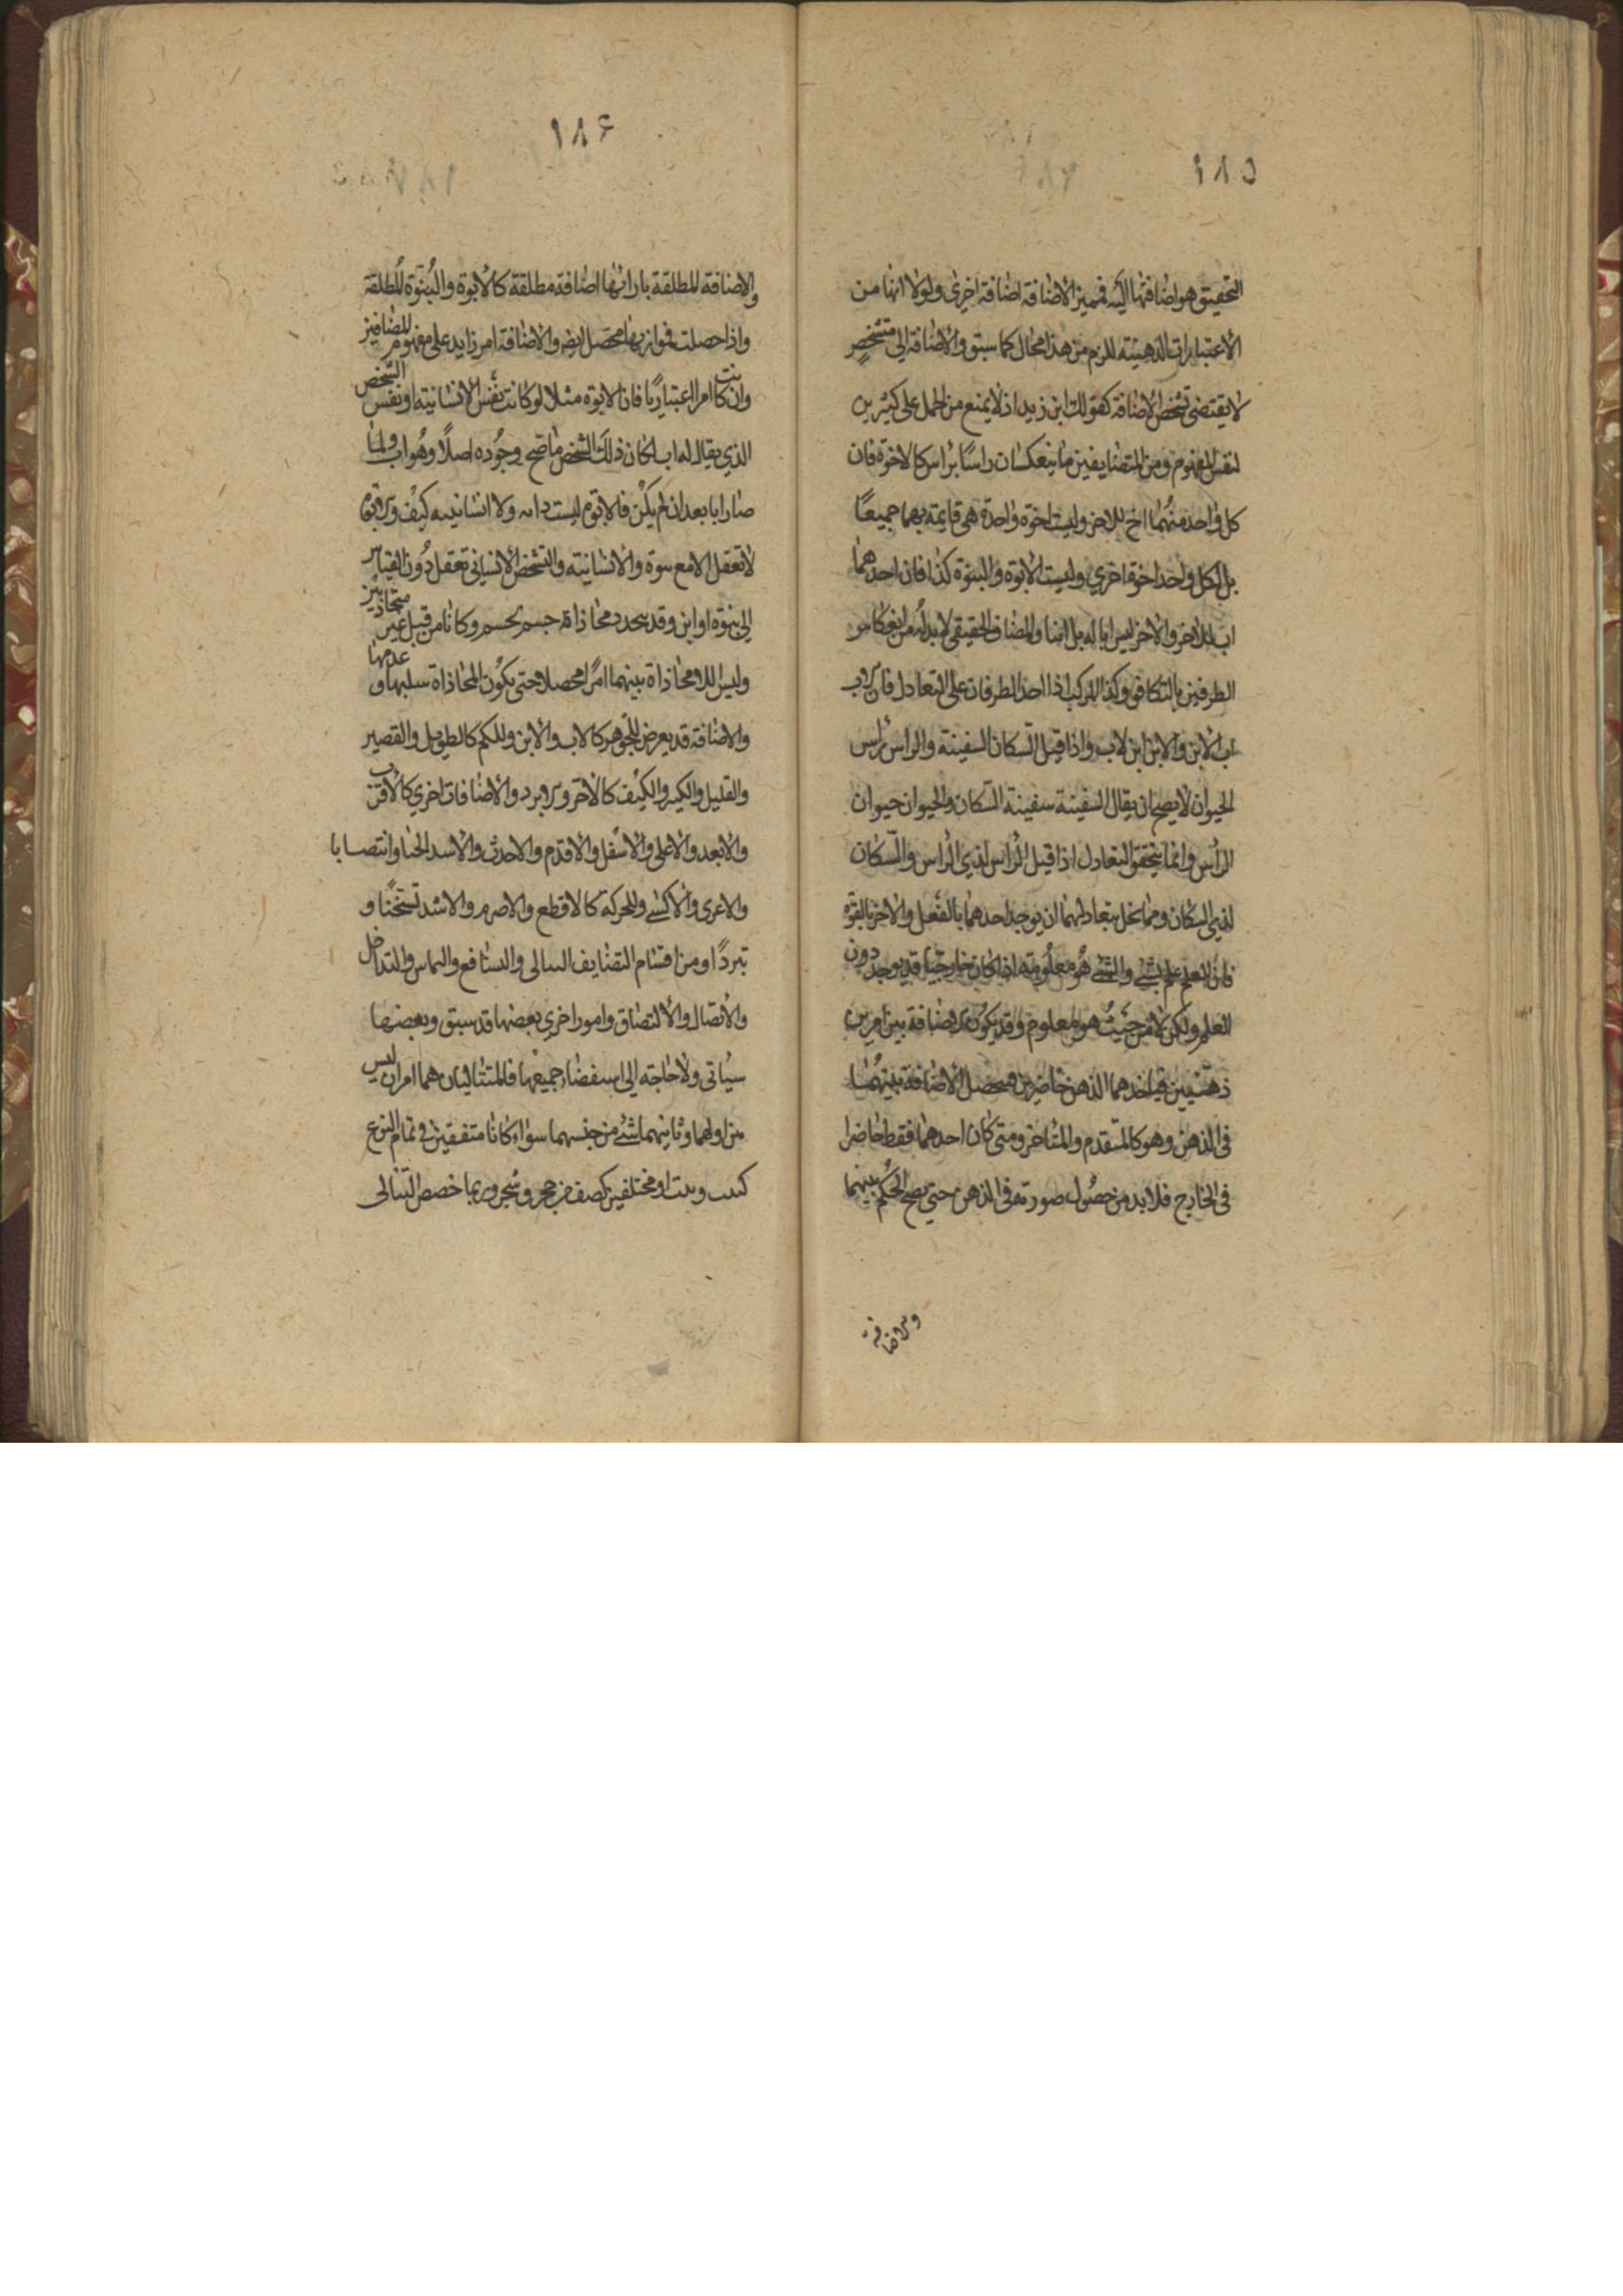 ١٨٥
التحقيق هو اضافتها اليه فتميز الاضافة اضافة اخرى ولولا انها من
الاعتبارات الذهنية للزم من هذا محال كما سبق والاضافة الى متشخص
لا يقتضى تشخص الاضافة كقولك ابن زيد اذ لا يمنع من الحمل على كثيرين
لنفس المفهوم ومن المتضايفين ما ينعكسان راسا براس كالاخوة فان
كل واحد منهما اخ للاخر وليست اخوة واحدة هى قايمة بهما جميعا
بل لكل واحد اخوة اخرى وليست الابوة والبنوة كذا فان احدهما
اب للاخر والاخر ليس ابا له بل ابنا والمضاف الحقيقى لا بد له من انعكاس
الطرفين بالتكافؤ وكذا المركب اذا اخذ الطرفان على التعادل فان الاب
اب الابن والابن ابن الاب واذا قيل السكان سكان السفينة والراس راس
الحيوان لا يصح ان يقال السفينة سفينة السكان والحيوان حيوان
الراس وانما يتحقق التعادل اذا قيل الراس لذى الراس والسكان
لذى السكان ومما يخل بتعادلهما ان يوجد احدهما بالفعل والاخر بالقوة
فان العلم علم بشى والشى هو معلومه اذا كان خارجيا قد يوجد دون
العلم ولكن لا من حيث هو معلوم وقد يكون الاضافة بين امرين
ذهنيين فياخذهما الذهن حاضرين فتحصل الاضافة بينهما
فى الذهن وهو كالمتقدم والمتاخر ومتى كان احدهما فقط حاضرا
فى الخارج فلا بد من حصول صورته فى الذهن حتى يصح الحكم بينهما
والاضافة
١٨٦
والاضافة المطلقة بازائها اضافة مطلقة كالابوة والبنوة المطلقة
واذا حصلت فموازيها محصل ايضا والاضافة امر زايد على مفهوم المضافين
وان كانت امرا اعتباريا فان الابوة مثلا لو كانت نفس الانسانية او نفس الشخص
الذي يقال له اب لكان ذلك الشخص ما صح وجوده اصلا وهو اب ولما
صار ابا بعد ان لم يكن فالابوة ليست ذاته ولا انسانيته كيف والابوة
لا تعقل الا مع بنوة والانسانية والتشخص الانسانى تعقل دون القياس
الى بنوة او ابن وقد يتجدد محاذاة جسم لجسم وكانا من قبل غير متحاذيين
وليس اللامحاذاة بينهما امرا محصلا حتى يكون المحاذاة سلبها او عدمها
والاضافة قد يعرض للجوهر كالاب والابن وللكم كالطويل والقصير
والقليل والكثير والكيف كالاحر والابرد والاضافات اخرى كالاقرب
والابعد والاعلى والاسفل والاقدم والاحدث والاشد انحنا وانتصابا
والاعرى والاكسى وللحركة كالاقطع والاصرم والاشد تسخنا و
تبردا ومن اقسام التضايف التتالى والتشافع والتماس والتداخل
والاتصال والالتصاق وامور اخرى بعضها قد سبق وبعضها
سياتى ولا حاجة الى استقضاء جميعها فالمتتاليان هما امران ليس
بين اولهما وثانيهما شى من جنسهما سواء كانا متفقين فى تمام النوع
كبيت وبيت او مختلفين كصف من حجر وشجر وربما خصص التتالى